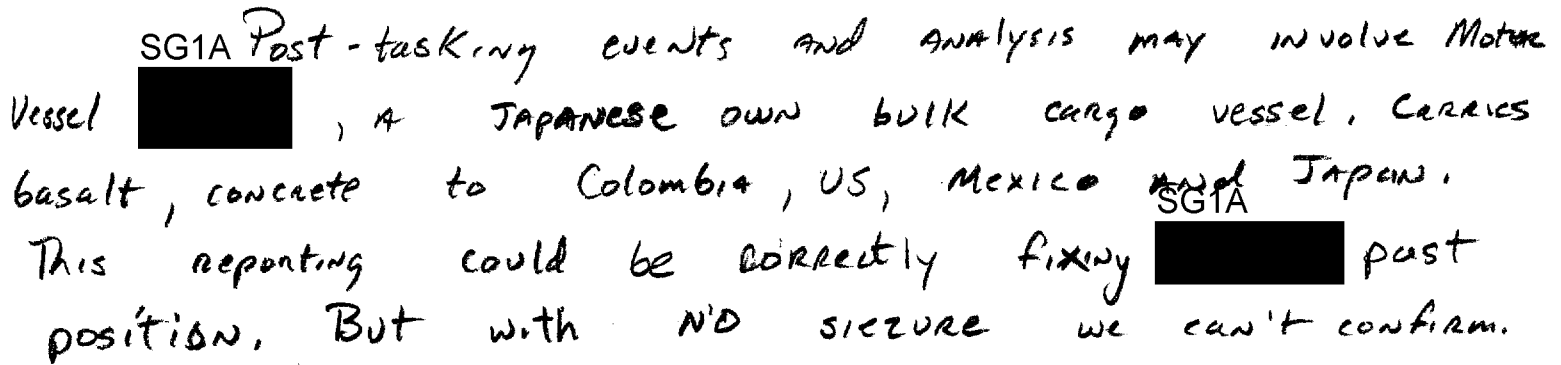 SG1A Post-tasking events and analysis may involve Motor
Vessel , a Japanese own bulk cargo vessel. Carries
basalt, concrete to Colombia, US, Mexico and Japan.
SG1A
This reporting could be correctly fixing past
position. But with NO siezure we can't confirm.